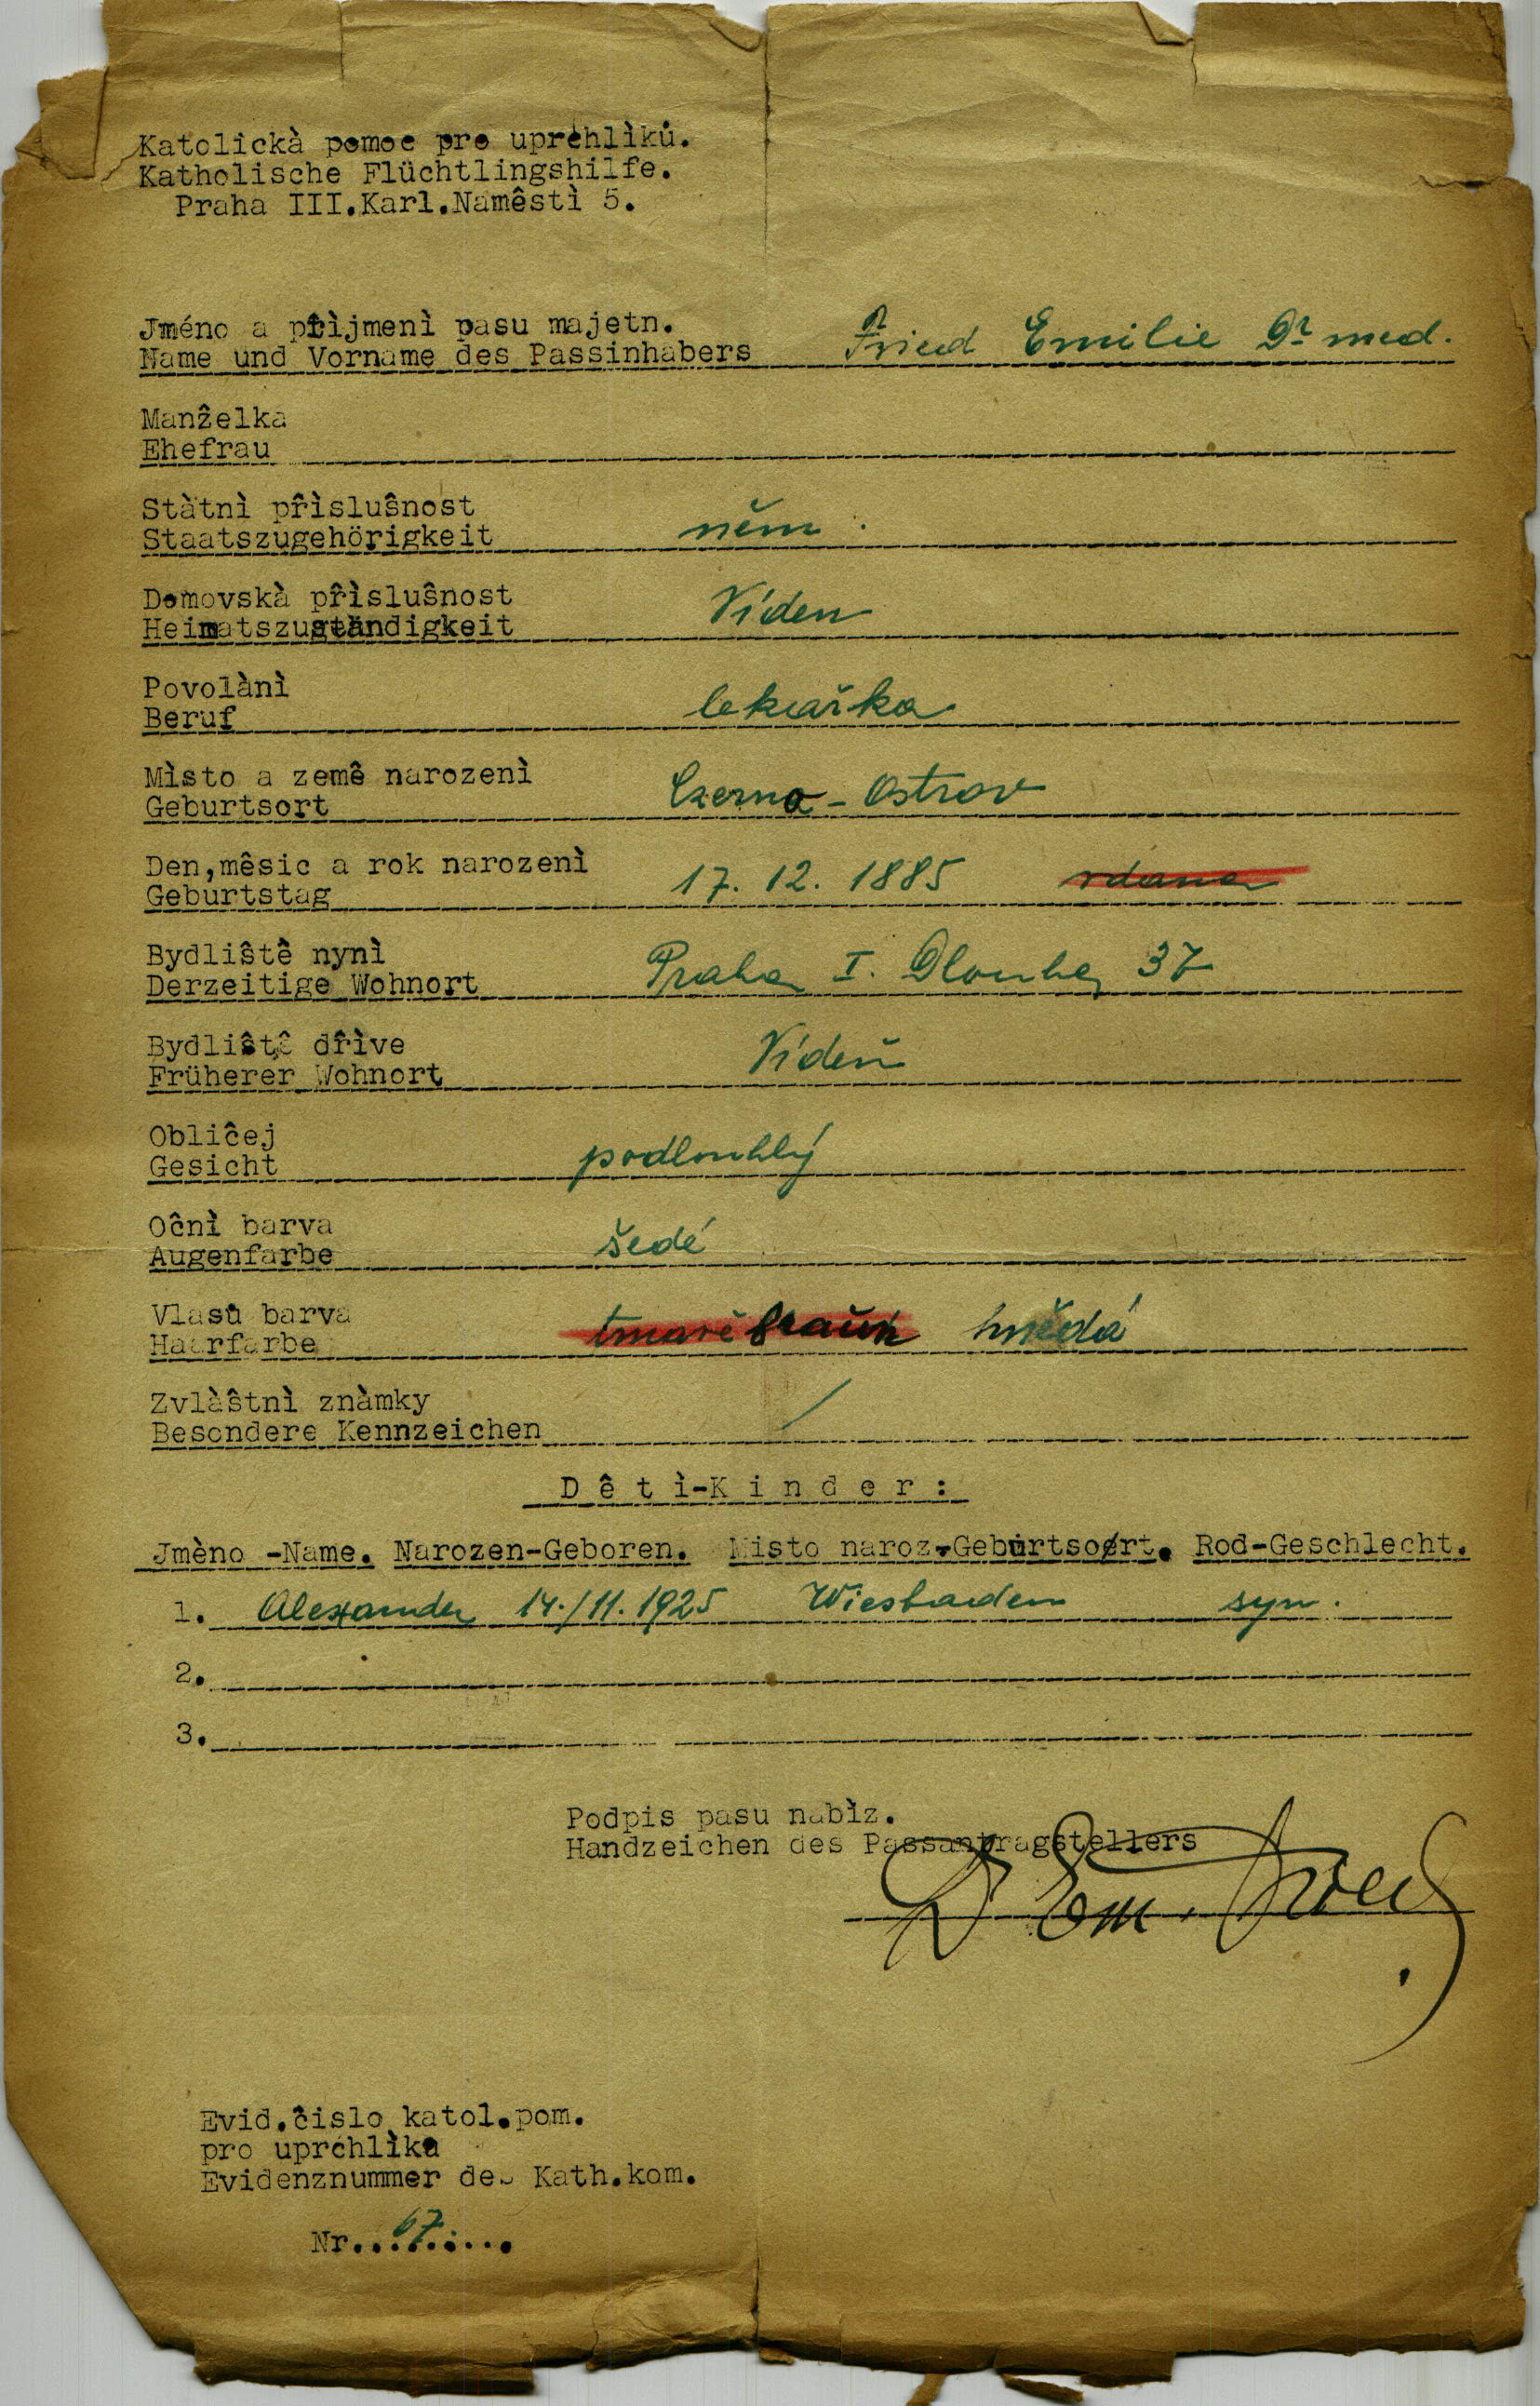 Katolickà pomoc pro uprchlìků.
Katholische Flüchtlingshilfe.
Praha III.Karl.Namêstì 5.
Jméno a přìjmenì pasu majetn.
Name und Vorname des Passinhabers Fried Emilie Dr med.
Manẑelka
Ehefrau
Stàtnì pr̂ìsluŝnost
Staatszugehörigkeit něm.
Domovskà pr̂ìsluŝnost
Heimatszuständigkeit Víden
Povolànì
Beruf lekařka
Mìsto a zemê narozenì
Geburtsort Czerno-Ostrov
Den,mêsic a rok narozenì
Geburtstag 17. 12. 1885 vdana
Bydliŝtê nynì
Derzeitige Wohnort Praha I. Dlouha 37
Bydliŝtê dr̂ìve
Früherer Wohnort Vídeň
Obliĉej
Gesicht podlouhlý
Oĉnì barva
Augenfarbe šedé
Vlasů barva
Haarfarbe tmavě braun hnědá
Zvlàŝtnì znàmky
Besondere Kennzeichen /
D ê t ì-K i n d e r :
Jmèno -Name. Narozen-Geboren. Misto naroz.-Geburtsort. Rod-Geschlecht.
1. Alexander 14./11.1925 Wiesbaden syn.
2.
3.
Podpis pasu nabìz.
Handzeichen des Passantragstellers
Dr Em. Fried
Evid.ĉislo katol.pom.
pro uprchlìka
Evidenznummer des Kath.kom.
Nr...67......